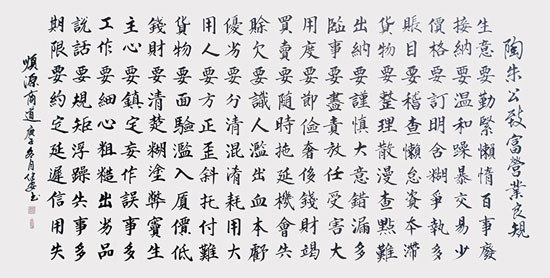 陶朱公致富營業良規
生意要勤緊懶惰百事廢
接納要溫和躁暴交易少
價格要訂明含糊爭執多
賬目要稽查懶怠資本滯
貨物要整理散漫查點難
出納要謹慎大意錯漏多
臨事要盡責放任受害大
用度要節儉奢侈錢財竭
買賣要隨時拖延機會失
賒欠要識人濫出血本虧
優劣要分清混淆耗用大
用人要方正歪斜托付難
貨物要面驗濫入廈價低
錢財要清楚糊塗弊竇生
主心要鎮定妄作誤事多
工作要細心粗糙出劣品
說話要規矩浮躁失事多
期限要約定延遲信用失
順源商道庚子冬月書